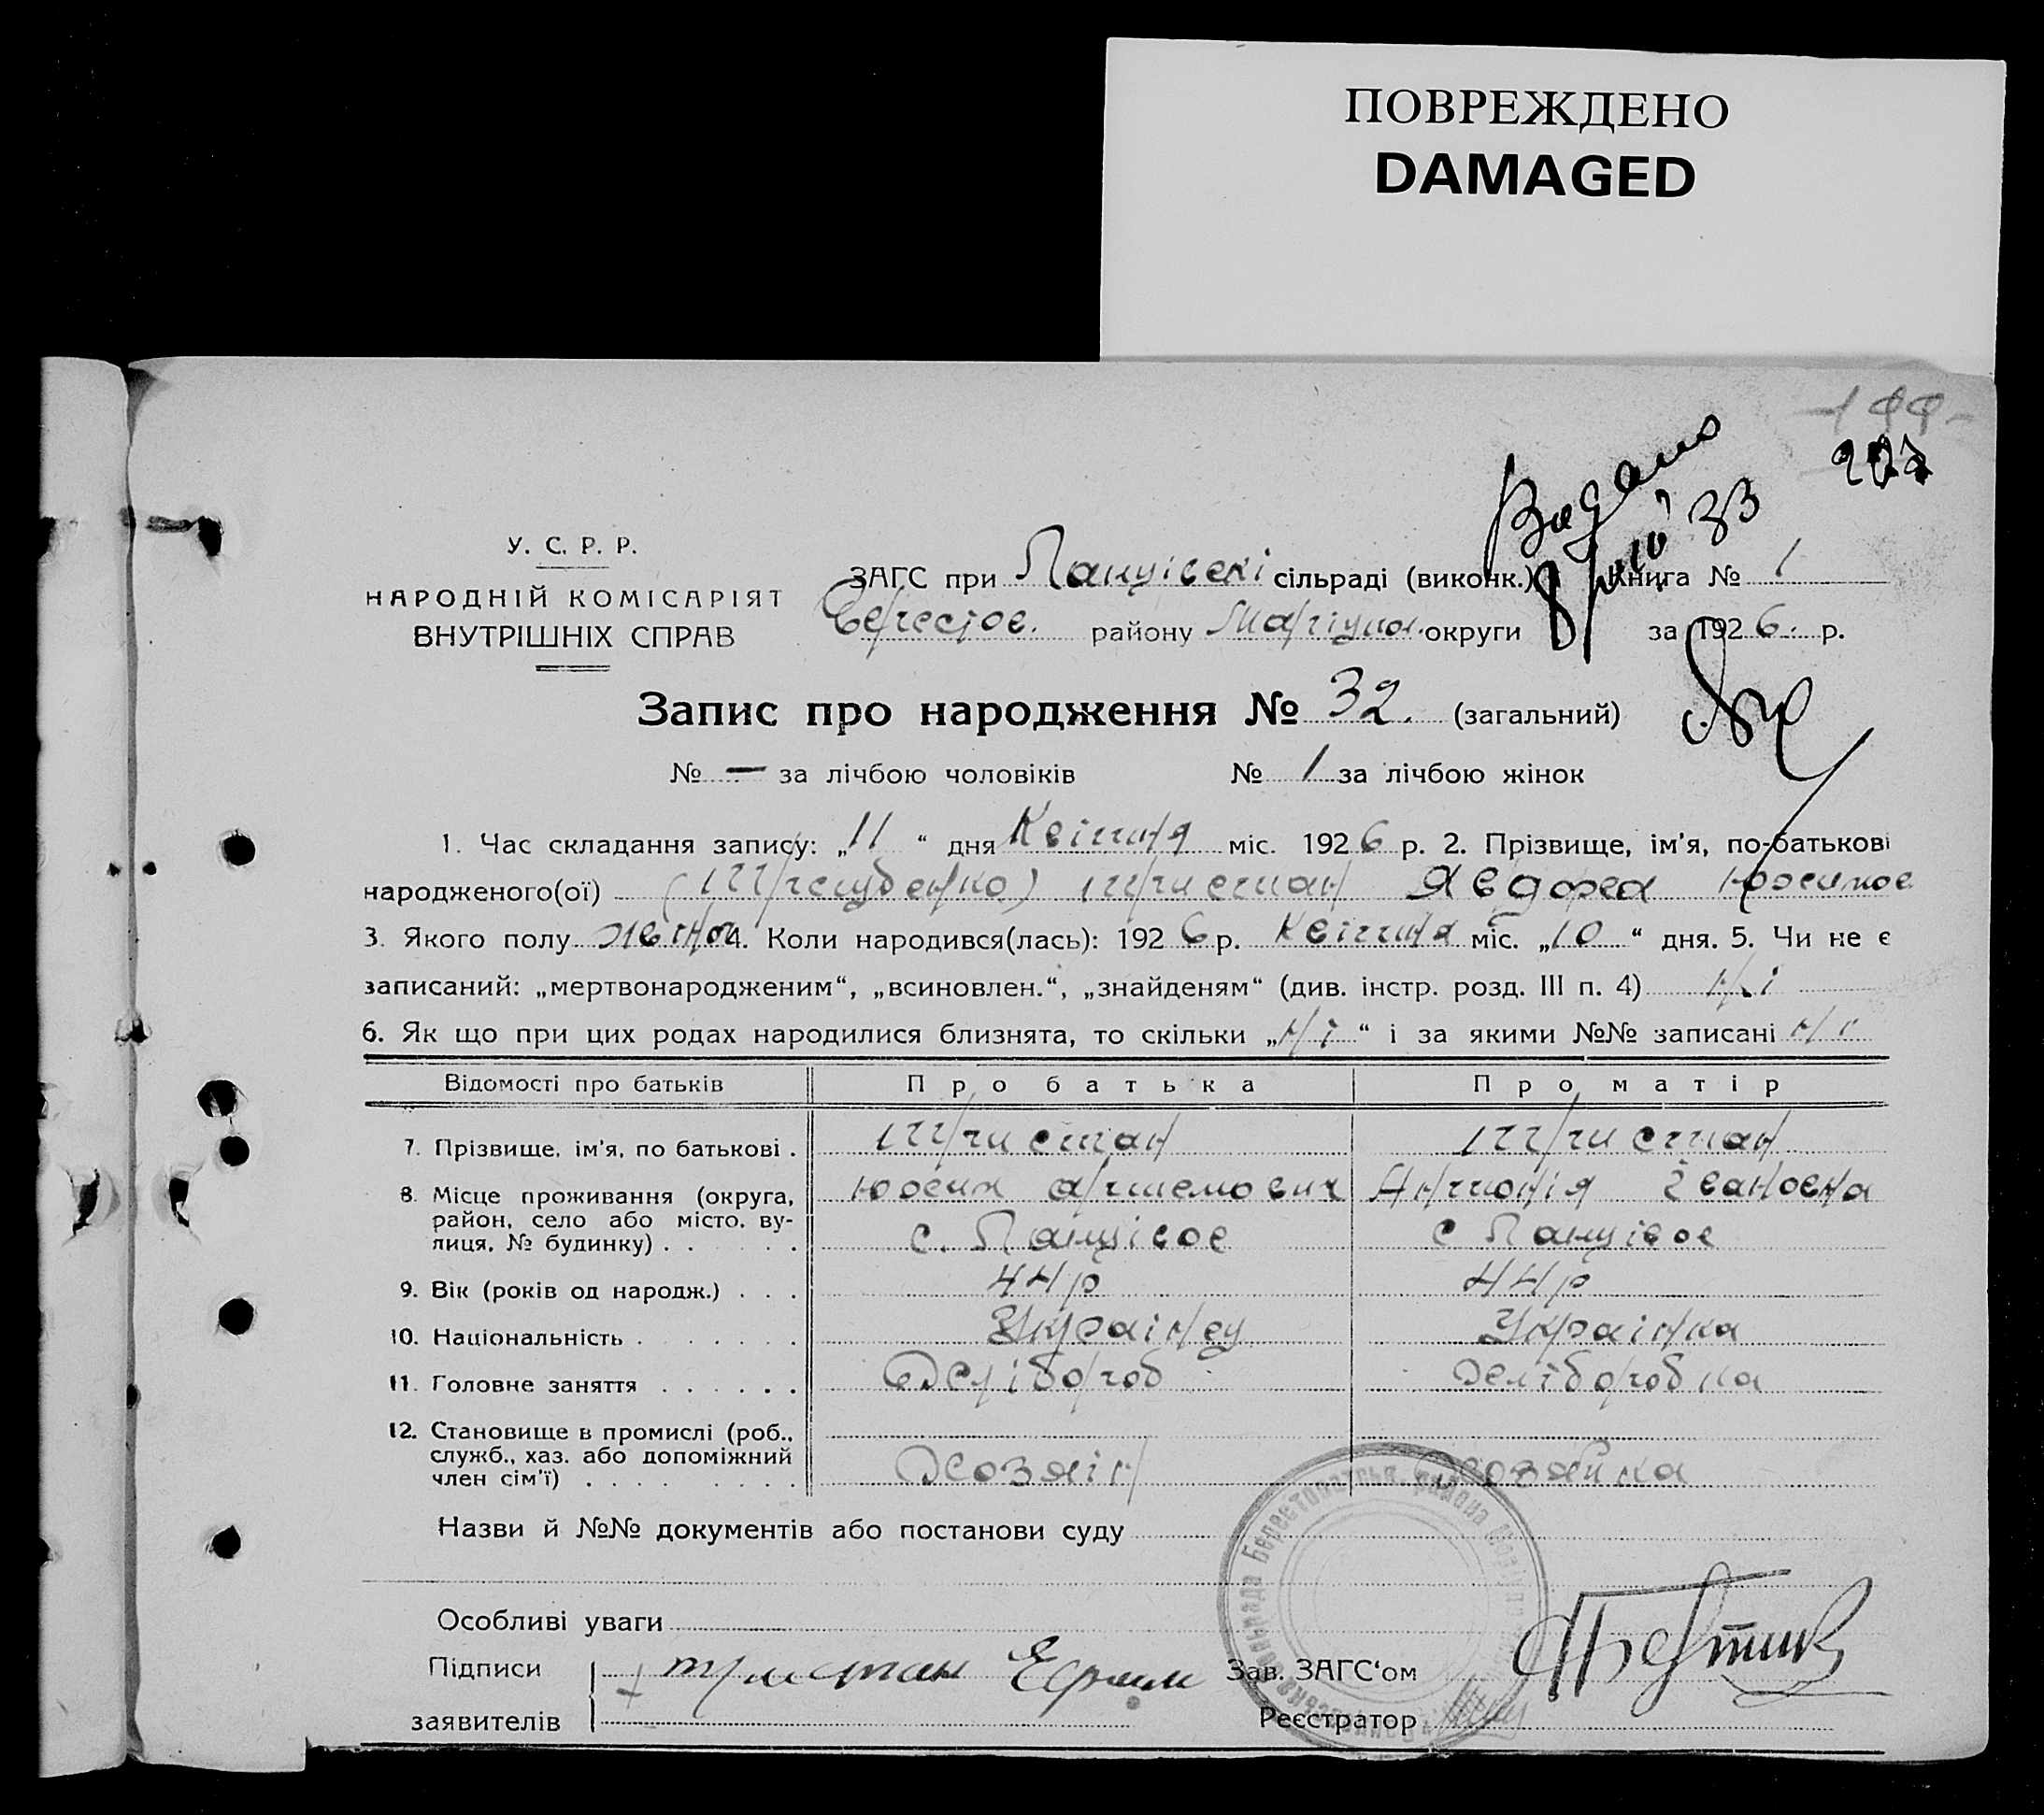 ПОВРЕЖДЕНО
DAMAGED
У. С. Р. Р.
НАРОДНІЙ КОМІСАРІЯТ
ВНУТРІШНІХ СПРАВ
Видано
33
ЗАГС при сільраді (виконк.) Книга № 1
району Маріупол. округи за 1926. р.
Запис про народження № 32. (загальний)
№ — за лічбою чоловіків № 1 за лічбою жінок
1. Час складання запису: „11“ дня Квітня міс. 1926 р. 2. Прізвище, ім'я, по-батькові
народженого(ої) Тристан Явдоха
3. Якого полу 4. Коли народився(лась): 1926 р. Квітня міс. „10“ дня. 5. Чи не є
записаний: „мертвонародженим“, „всиновлен.“, „знайденям“ (див. інстр. розд. III п. 4) Ні
6. Як що при цих родах народилися близнята, то скільки „Ні“ і за якими №№ записані Ні
Відомості про батьків Про батька Про матір
7. Прізвище, ім'я, по батькові . Тристан Тристан
8. Місце проживання (округа, Антонія Івановна
район, село або місто, ву-
лиця, № будинку) . . . . с. с
9. Вік (років од народж.) . . . 44 р 44 р
10. Національність . . . . . . . Українец Українка
11. Головне заняття . . . . . . Хлібороб Хліборобка
12. Становище в промислі (роб.,
служб., хаз. або допоміжний
член сім'ї) . . . . . . . . Хозяін Хозяйка
Назви й №№ документів або постанови суду
Особливі уваги
Підписи тристан Зав. ЗАГС'ом
заявителів Реєстратор